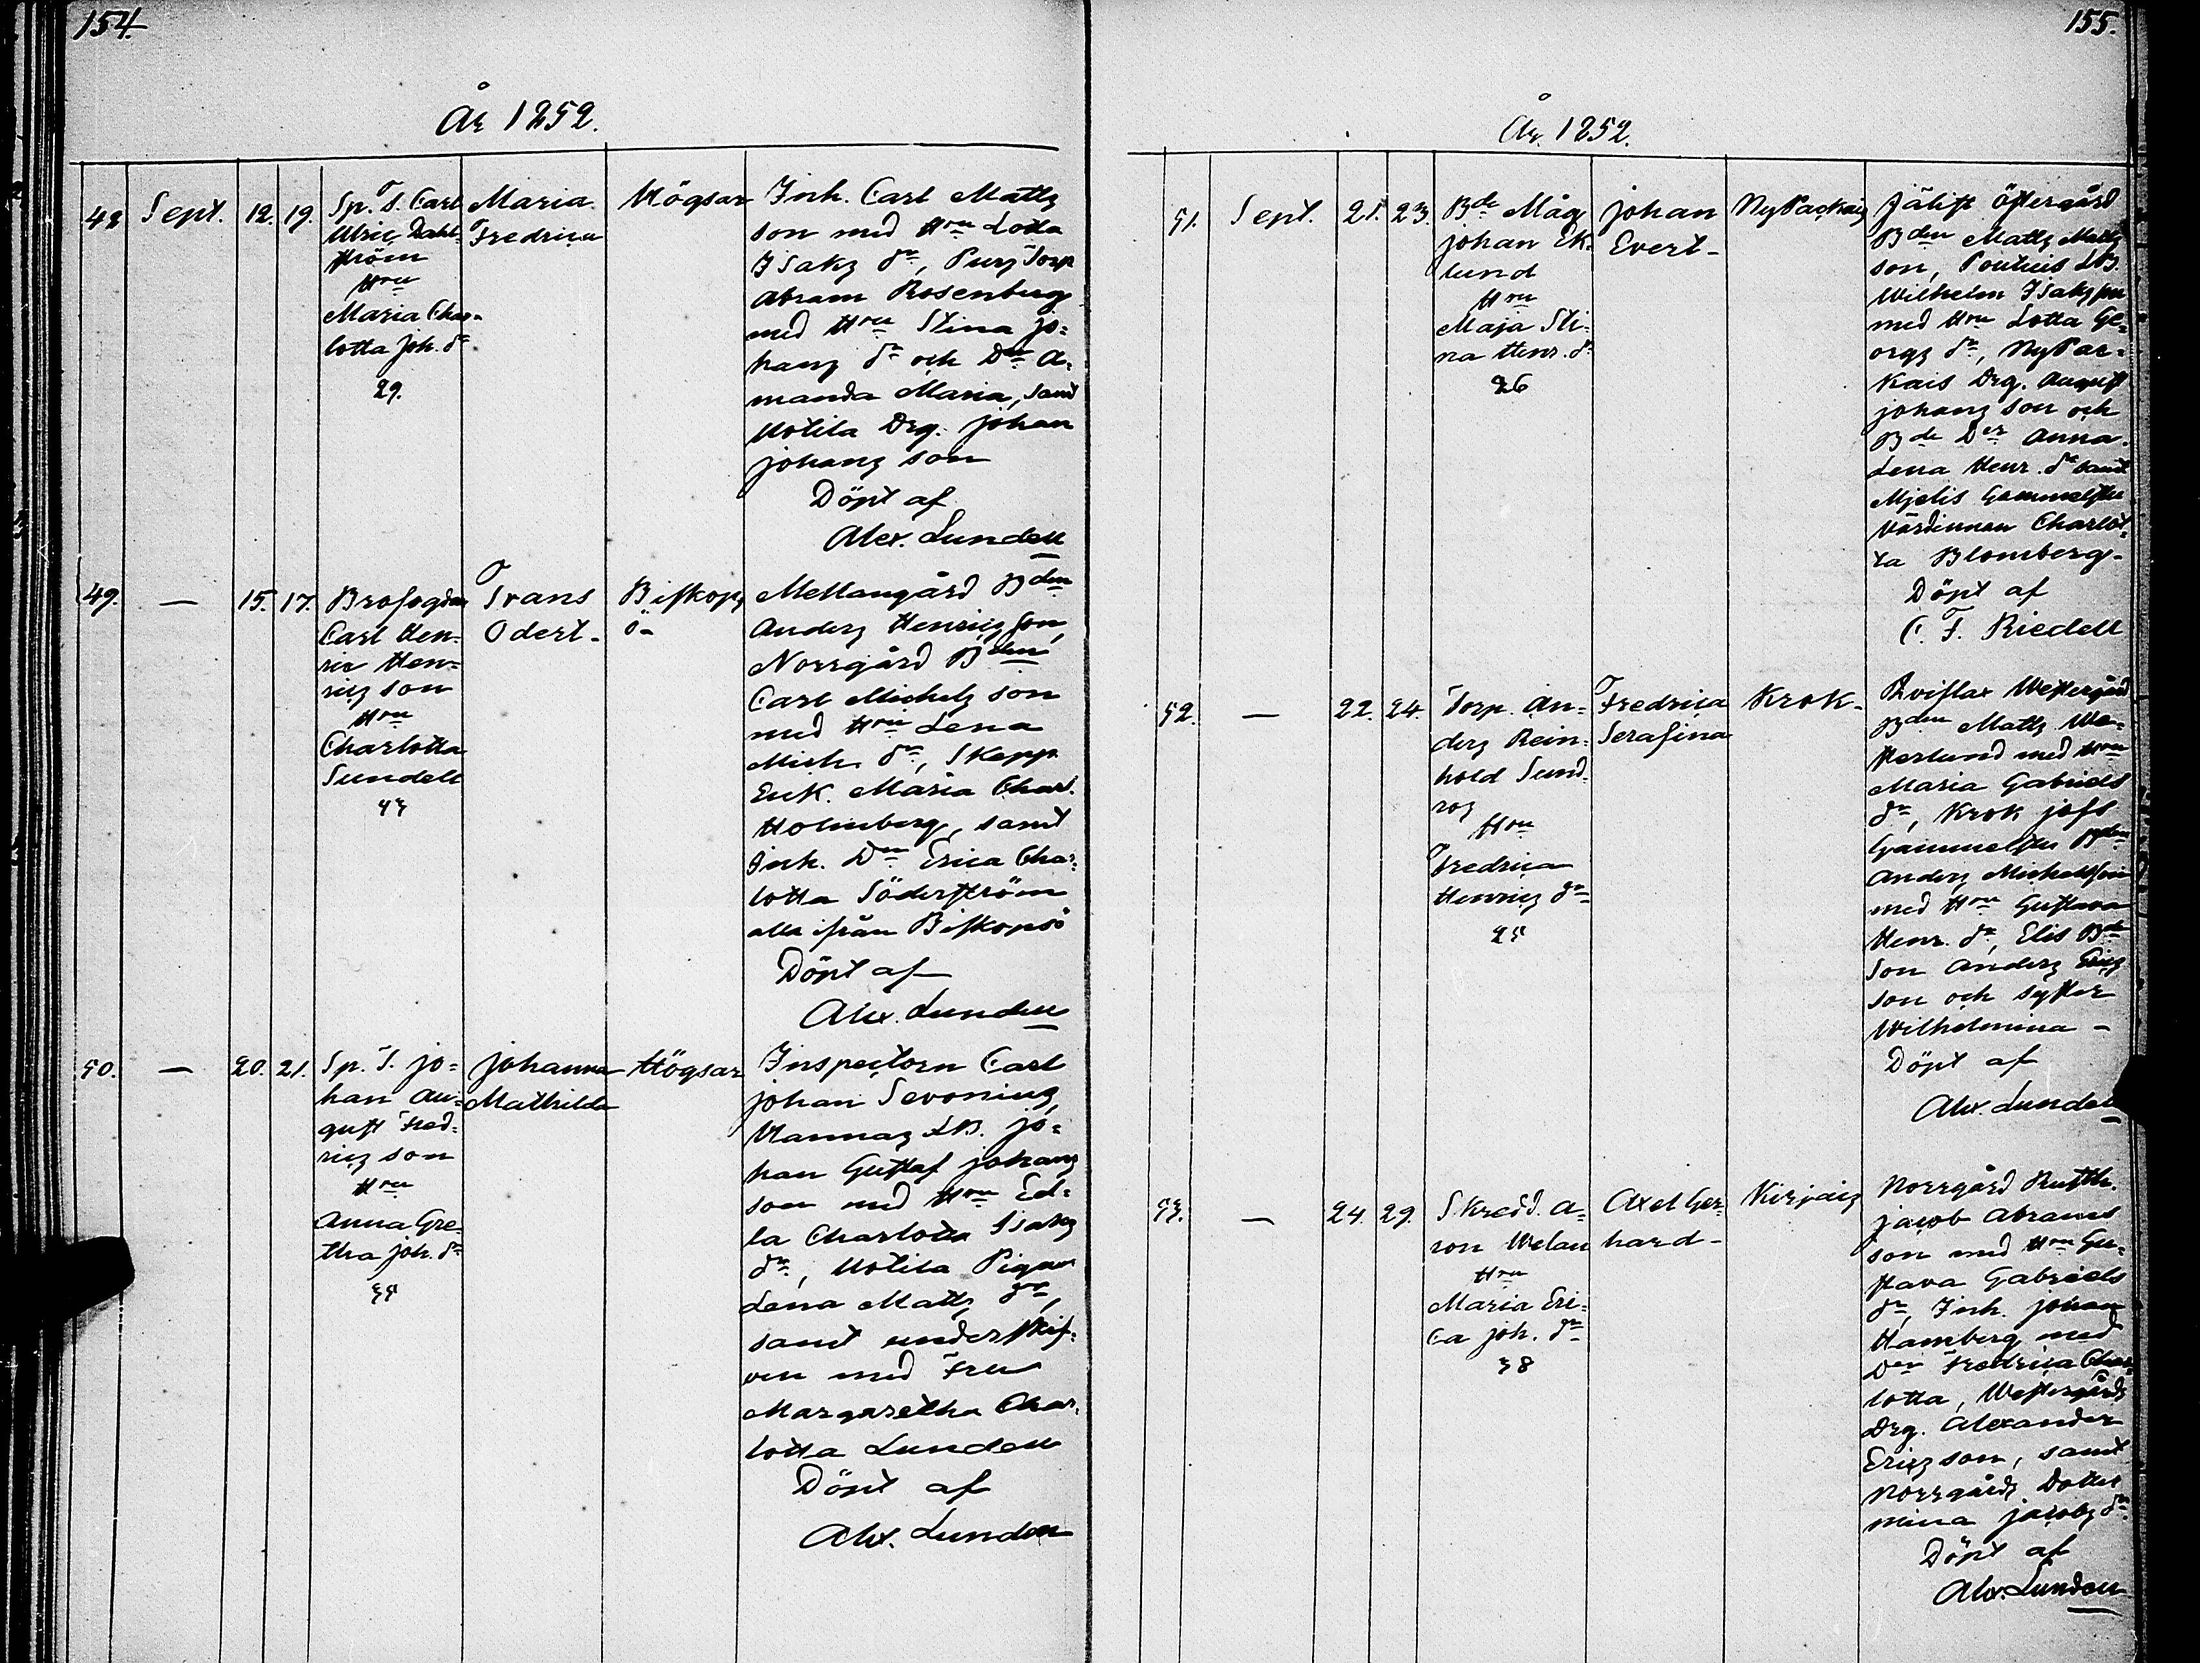 154.
År 1852.
48 Sept. 12. 19.
Sp. T. Carl
Ulric Dahl-
ström
Hru
Maria Char-
lotta Joh. dr
29.
Maria
Fredrica
Högsar
Inh. Carl Matts
son med Hru Lotta
Isaks dr, Purs Torp
Abram Rosenberg
med Hru Stina Jo-
hans dr och Dr A-
manda Maria, samt
Uotila Drg. Johan
Johans son
Döpt af
Alex. Lundell
49. — 15. 17.
Brofogden
Carl Hen-
ric Hen-
rics son
Hru
Charlotta
Sundell
43
Frans
Odert-
Biskops
ö-
Mellangård Bden
Anders Henrics son,
Norrgård Bden
Carl Michels son
med Hru Lena
Mich. dr, Skepp.
Enk. Maria Charl.
Holmberg, samt
Inh. Dr Erica Char-
lotta Söderström
alla ifrån Biskopsö
Döpt af
Alex. Lundell
50. — 20. 21.
Sp. T. Jo-
han Au-
gust Fred-
rics son
Hru
Anna Gre-
tha Joh. dr
35
Johanna
Mathilda
Högsar
Inspectorn Carl
Johan Sevonius,
Mannas LB. Jo-
han Gustaf Johans
son med Hru Ed-
la Charlotta Isaks
dr, Uotila Pigan
Lena Matts dr,
samt underskrif-
ven med Fru
Margaretha Char-
lotta Lundell
Döpt af
Alex. Lundell
155.
År 1852.
51. Sept. 21. 23.
Bde Måg
Johan Ek-
lund
Hru
Maja Sti-
na Henr. dr
26
Johan
Evert-
Ny Parkais
Jälist Östergård
Bden Matts Matts
son, LB.
Wilhelm Isaks son
med Hru Lotta Ge-
orgs dr, Ny Par-
kais Drg. August
Johans son och
Bde Der Anna
Lena Henr. dr samt
Mjelis Gammelstu
Värdinnan Charlot-
ta Blomberg-
Döpt af
C. F. Riedell
52. — 22. 24.
Torp. An-
ders Rein-
hold Sund-
ros
Hru
Fredrica
Henrics dr
25
Fredrica
Serafina
Krok-
Westergård
Bden Matts We-
sterlund med Hru
Maria Gabriels
dr, Krok
Gammelstu Bden
Anders Michelsson
med Hru Gustava
Henr. dr, Elis Bde
Son Anders Erics
son och syster
Wilhelmina -
Döpt af
Alex. Lundell
53. — 24. 29.
Skredd. A-
ron Welan
Hru
Maria Eri-
ca Joh. dr
38
Axel Ger-
hard-
Kirjais
Norrgård Rusth.
Jacob Abrams
son med Hru Gu-
stava Gabriels
dr, Inh. Johan
Hamberg med
Der Fredrica Char-
lotta, Westergårds
Drg. Alexander
Erics son, samt
Norrgårds Dotter
Mina Jacobs dr
Döpt af
Alex. Lundell